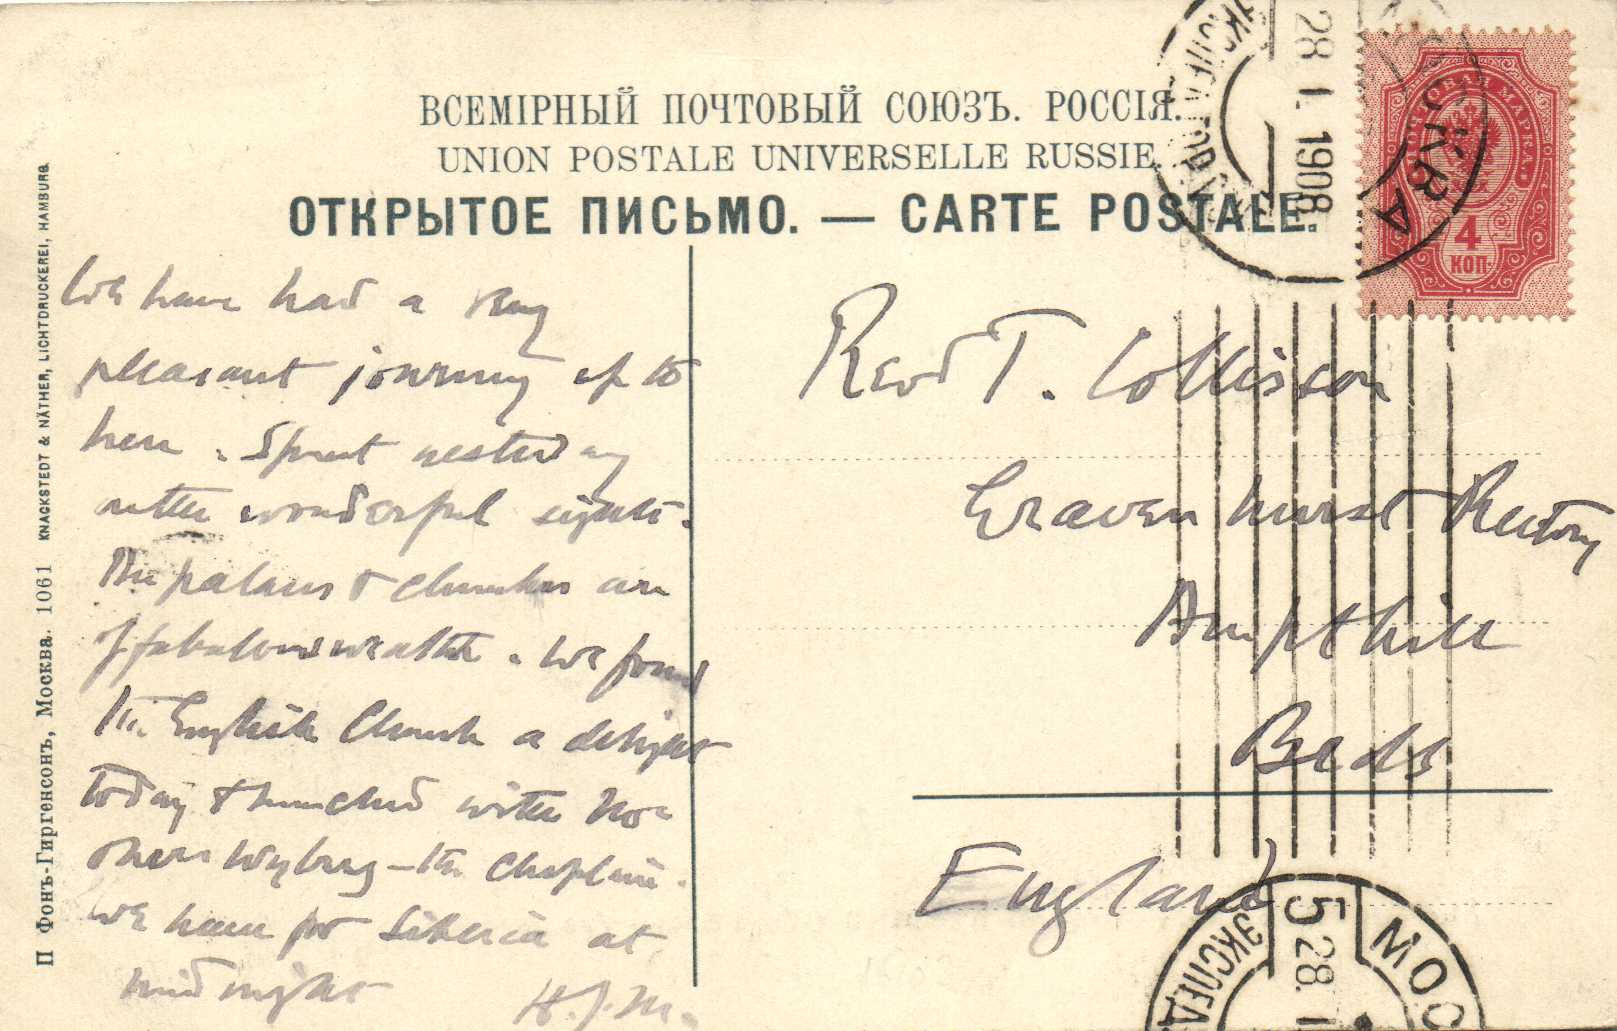 ВСЕМІРНЫЙ ПОЧТОВЫЙ СОЮЗЪ. РОССІЯ.
UNION POSTALE UNIVERSELLE RUSSIE.
ОТКРЫТОЕ ПИСЬМО. — CARTE POSTALE.
28. 1. 1908
ПОЧТОВАЯ МАРКА
4
КОП.
We have had a very
pleasant journey up to
here. Spent yesterday
wonderful sights.
The palaces & churches are
of fabulous wealth. We found
the English Church a delight
today & lunched with
Wyburg – the chaplain.
We leave for Siberia at
midnight H.J.M.
Revd T. Collisson
Gravenhurst Rectory
Ampthill
Beds
England
5
28. 1
МОС
ЭКСПЕД
П Фонъ-Гиргенсонъ, Москва. 1061 KNACKSTEDT & NÄTHER, LICHTDRUCKEREI, HAMBURG